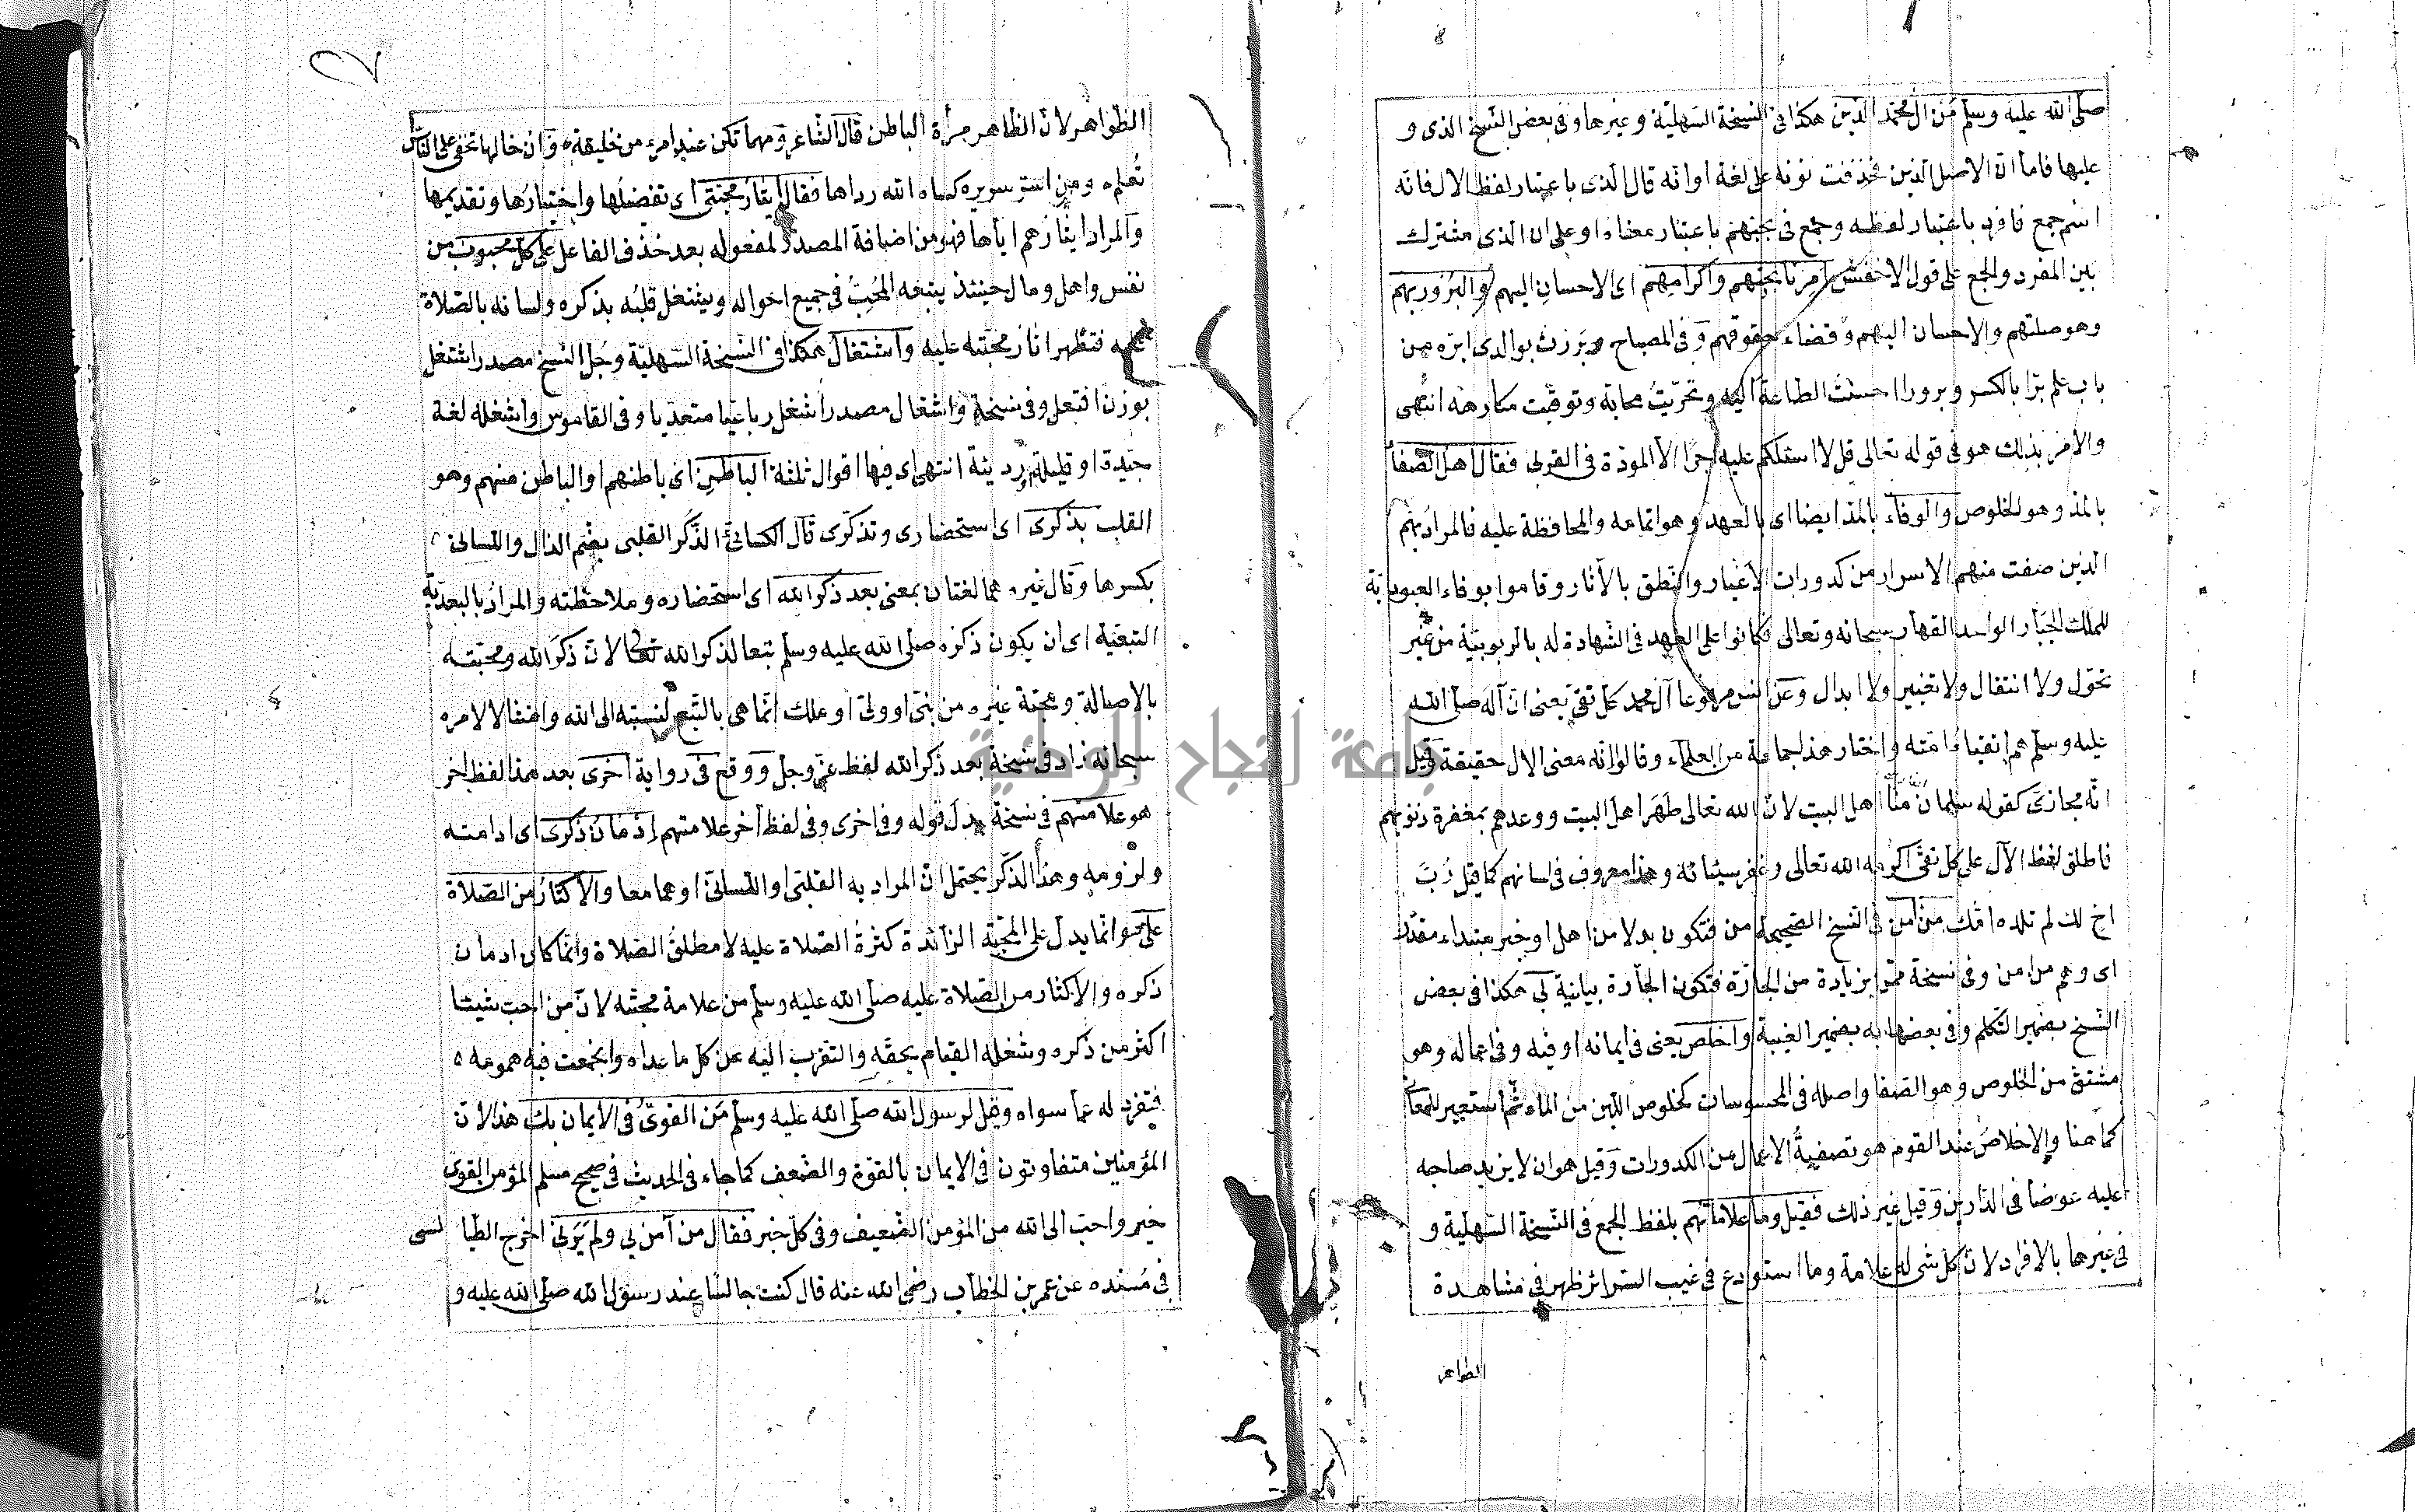 صلى الله عليه وسلم من آل محمد الذين هكذا في النسخة السهلية وغيرها وفي بعض النسخ الذي و
عليها فاما ان الاصل الذين فحذفت نونه على لغة او انه قال الذي باعتبار لفظ الال فانه
اسم جمع فافرد باعتبار لفظه وجمع في بحبهم باعتبار معناه او على ان الذي مشترك
بين المفرد والجمع على قول الاخفش امرنا بحبهم واكرامهم اى الاحسان اليهم والبرور بهم
وهو صلتهم والاحسان اليهم وقضاء حقوقهم وفي المصباح وبررت بوالدى ابره من
باب علم برا بالكسر وبرورا احسنت الطاعة اليه وتحريت محابه وتوقيت مكارهه انتهى
والامر بذلك هو في قوله تعالى قل لا اسئلكم عليه اجرا الا المودة في القربى فقال اهل الصفا
بالمد وهو الخلوص والوفاء بالمد ايضا اى بالعهد وهو اتمامه والمحافظة عليه فالمراد بهم
الذين صفت منهم الاسرار من كدورات الاغيار والتعلق بالآثار وقاموا بوفاء العبودية
للملك الجبار الواحد القهار سبحانه وتعالى فكانوا على العهد في الشهادة له بالربوبية من غير
تحول ولا انتقال ولا تغيير ولا ابدال وعن انس مرفوعا آل محمد كل تقى يعنى ان آله صلى الله
عليه وسلم هم اتقياء امته واختار هذا جماعة من العلماء وقالوا انه معنى الال حقيقة وقيل
انه مجازى كقوله سلمان منا اهل البيت لان الله تعالى طهر اهل البيت ووعدهم بمغفرة ذنوبهم
فاطلق لفظ الآل على كل تقى اكرمه الله تعالى وغفر سيئاته وهذا معروف في لسانهم كما قيل رب
اخ لك لم تلده امك من آمن في النسخ الصحيحة من فتكون بدلا من اهل او خبر مبتداء مقدر
اى وهم من امن وفي نسخة ممن بزيادة من الجارة فتكون الجارة بيانية بى هكذا في بعض
النسخ بضمير التكلم وفي بعضها به بضمير الغيبة واخلص يعنى في ايمانه او فيه وفي اعماله وهو
مشتق من الخلوص وهو الصفا واصله في المحسوسات كخلوص اللبن من الماء ثم استعير للمعا
كما هنا والاخلاص عند القوم هو تصفية الاعمال من الكدورات وقيل هو ان لا يريد صاحبه
عليه عوضا في الدارين وقيل غير ذلك فقيل وما علاماتهم بلفظ الجمع في النسخة السهلية و
في غيرها بالافراد لان كل شى له علامة وما استودع في غيب السرائر ظهر في مشاهدة
الظواهر
الظواهر لان الظاهر مرآة الباطن قال الشاعر ومهما تكن عند امرء من خليقة وان خالها تخفى على الناس
تعلم ومن استر سريره كساه الله رداها فقال ايثار محبتى اى تفضيلها واختيارها وتقديمها
والمراد ايثارهم اياها فهو من اضافة المصدر لمفعوله بعد حذف الفاعل على كل محبوب من
نفس واهل ومال حينئذ يتبعه المحب في جميع احواله ويشتغل قلبه بذكره ولسانه بالصلاة
عليه فتظهر اثار محبته عليه واشتغال هكذا في النسخة السهلية وجل النسخ مصدر اشتغل
بوزن افتعل وفي نسخة واشغال مصدر اشغل رباعيا متعديا وفي القاموس واشغله لغة
جيدة او قليلة او رديئة انتهى اى فيها اقوال ثلثة الباطن اى باطنهم او الباطن منهم وهو
القلب بذكرى اى استحضارى وتذكرى قال الكسائى الذكر القلبى بضم الذال واللسانى
بكسرها وقال غيره هما لغتان بمعنى بعد ذكر الله اى استحضاره وملاحظته والمراد بالبعدية
التبعية اى ان يكون ذكره صلى الله عليه وسلم تبعا لذكر الله تعالى لان ذكر الله ومحبته
بالاصالة ومحبة غيره من نبى او ولى او ملك انما هى بالتبع لنسبته الى الله وامتثالا لامره
سبحانه زاد في نسخة بعد ذكر الله لفظ عز وجل ووقع في رواية اخرى بعد هذا لفظ اخر
هو علامتهم في نسخة بدل قوله وفي اخرى وفي لفظ آخر علامتهم ادمان ذكرى اى ادامته
ولزومه وهذا الذكر يحتمل ان المراد به القلبى او اللسانى او هما معا والاكثار من الصلاة
على وانما يدل على المحبة الزائدة كثرة الصلاة عليه لا مطلق الصلاة وانما كان ادمان
ذكره والاكثار من الصلاة عليه صلى الله عليه وسلم من علامة محبته لان من احب شيئا
اكثر من ذكره وشغله القيام بحقه والتقرب اليه عن كل ما عداه واجتمعت فيه همومه
فتفرد له عما سواه وقيل لرسول الله صلى الله عليه وسلم من القوى في الايمان بك هذا لان
المؤمنين متفاوتون في الايمان بالقوة والضعف كما جاء في الحديث في صحيح مسلم المؤمن القوى
خير واحب الى الله من المؤمن الضعيف وفي كل خير فقال من آمن بى ولم يرنى اخرج الطيالسى
في مسنده عن عمر بن الخطاب رضى الله عنه قال كنت جالسا عند رسول الله صلى الله عليه و
جامعة النجاح الوطنية